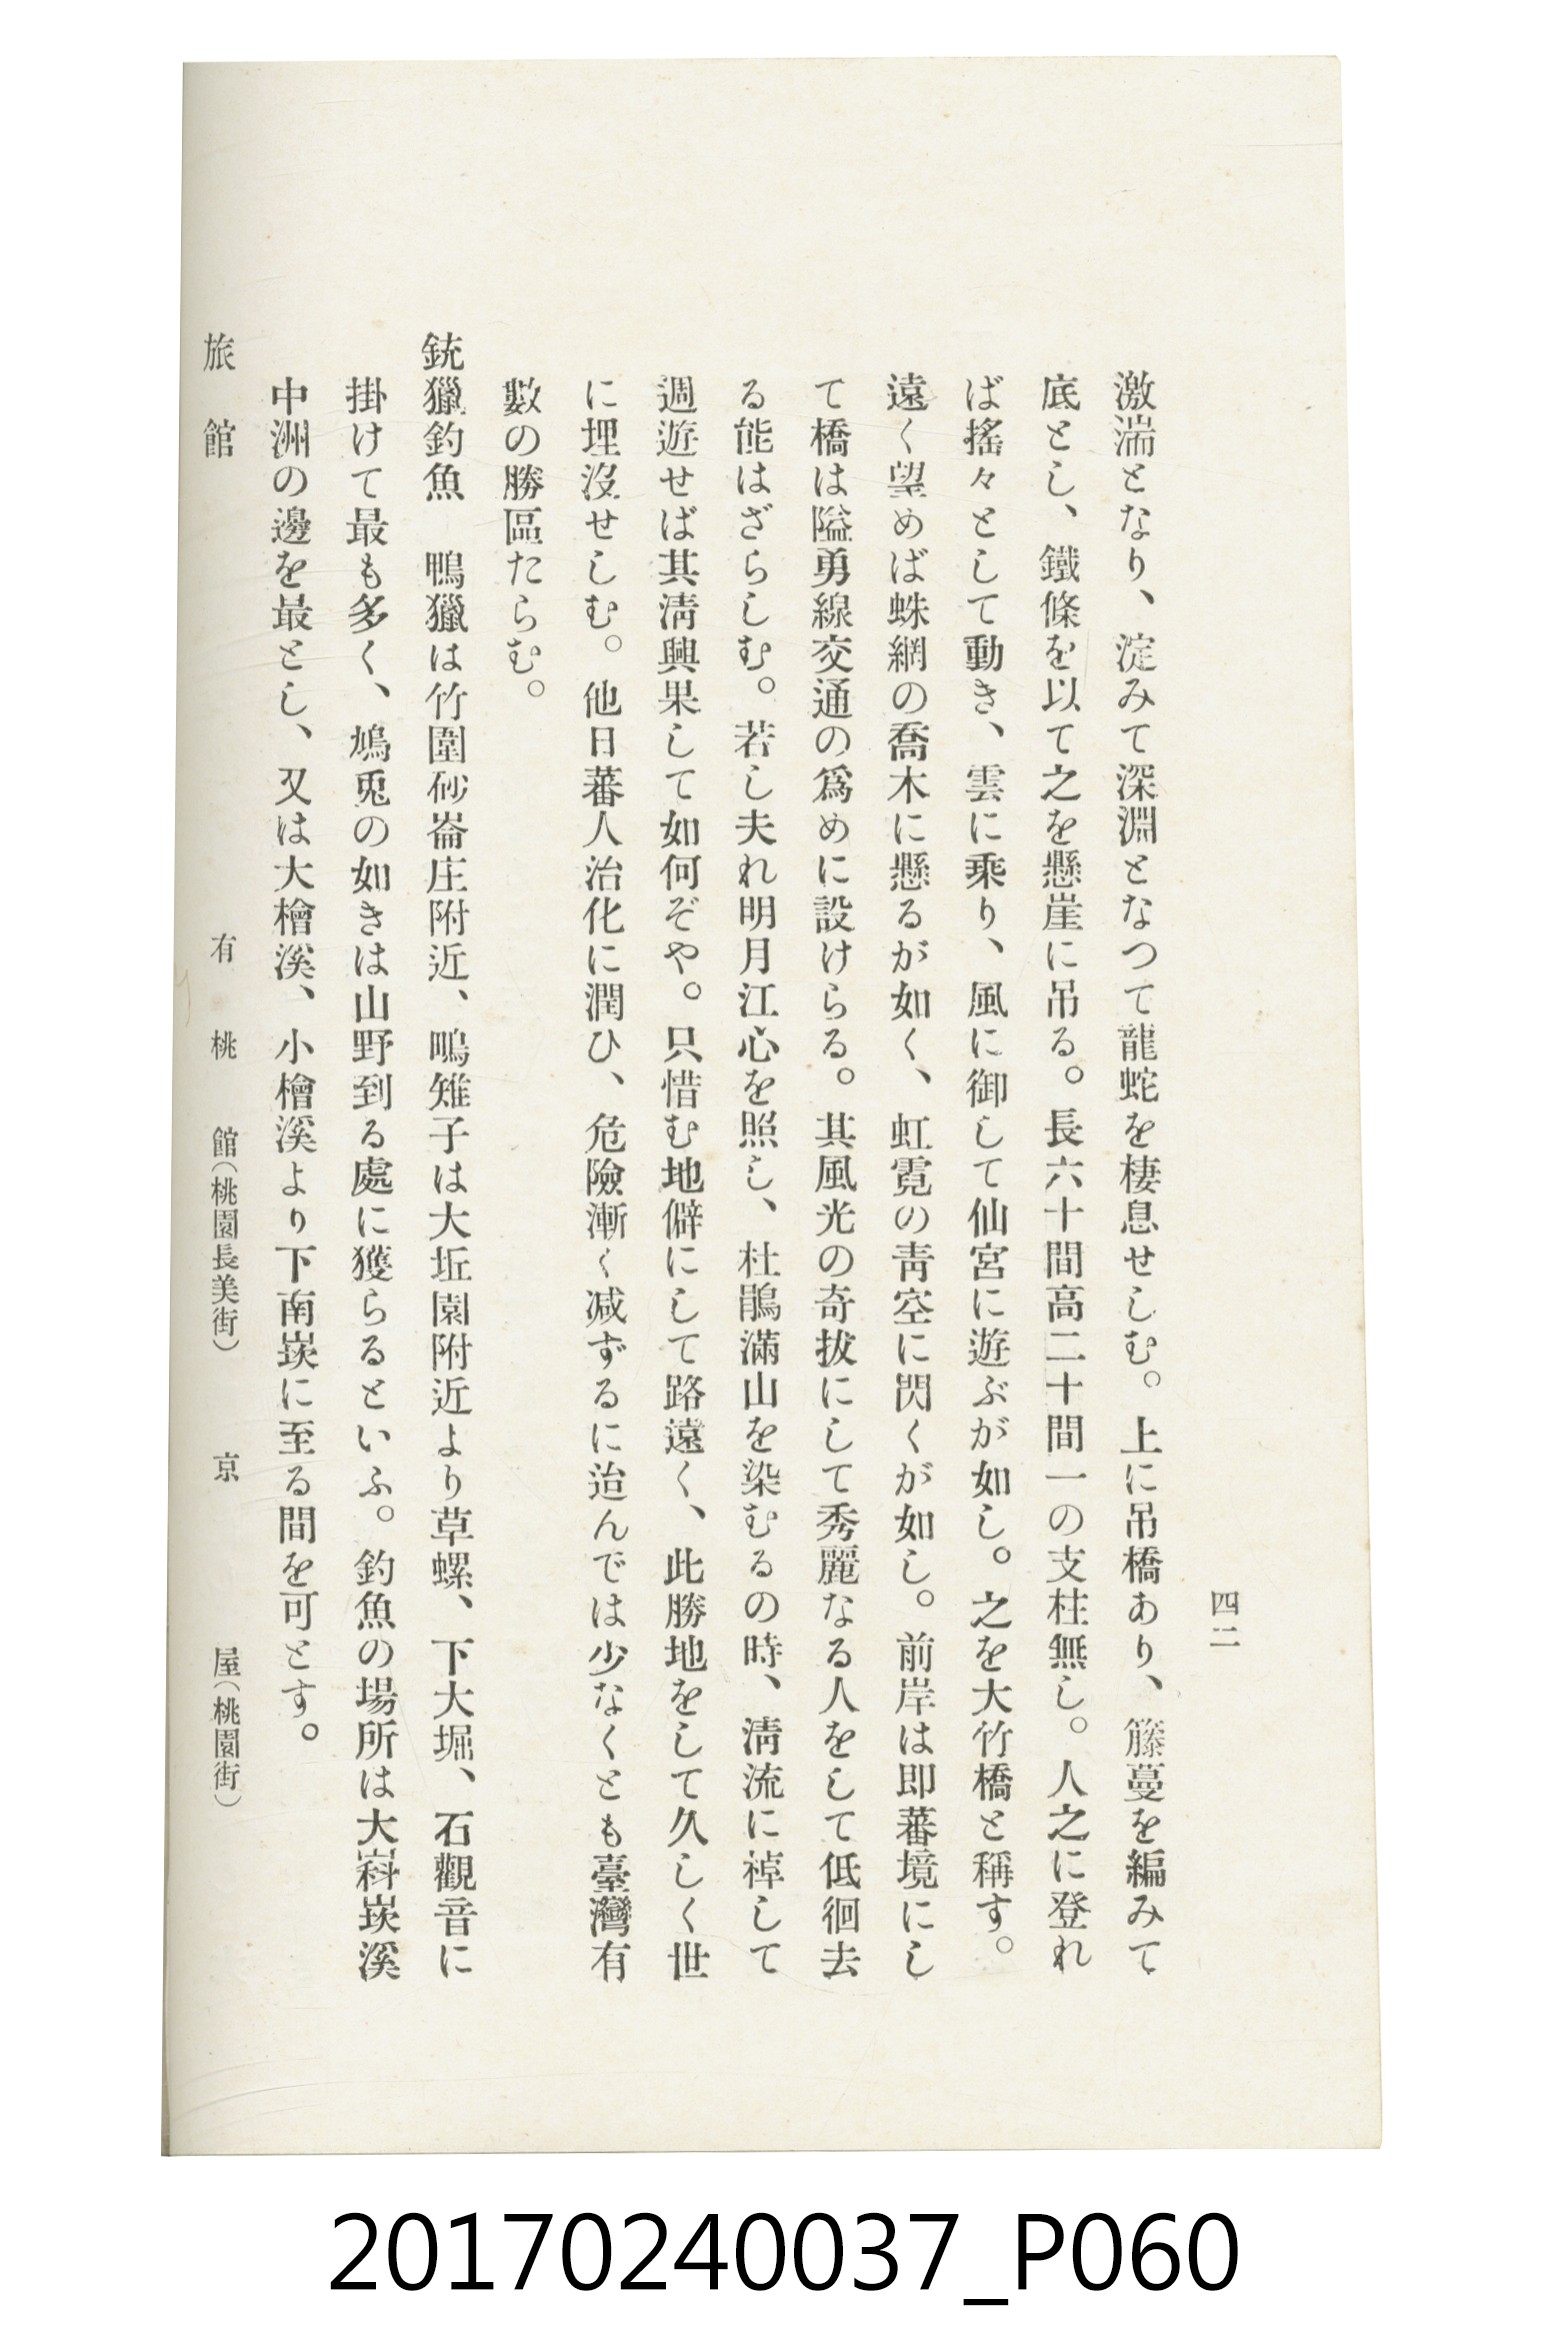 四二
激湍となり、淀みて深淵となつて龍蛇を棲息せしむ。上に吊橋あり、籐蔓を編みて
底とし、鐵條を以て之を懸崖に吊る。長六十間高二十間一の支柱無し。人之に登れ
ば搖々として動き、雲に乘り、風に御して仙宮に遊ぶが如し。之を大竹橋と稱す。
遠く望めば蛛網の喬木に懸るが如く、虹霓の靑空に閃くが如し。前岸は即蕃境にし
て橋は隘勇線交通の爲めに設けらる。其風光の奇拔にして秀麗なる人をして低徊去
る能はざらしむ。若し夫れ明月江心を照し、杜鵑滿山を染むるの時、淸流に棹して
週遊せば其淸興果して如何ぞや。只惜む地僻にして路遠く、此勝地をして久しく世
に埋沒せしむ。他日蕃人治化に潤ひ、危險漸く减ずるに迨んでは少なくとも臺灣有
數の勝區たらむ。
銃獵釣魚　鴨獵は竹圍砂崙庄附近、鴫雉子は大坵園附近より草螺、下大堀、石觀音に
掛けて最も多く、鳩兎の如きは山野到る處に獲らるといふ。釣魚の場所は大嵙崁溪
中洲の邊を最とし、又は大檜溪、小檜溪より下南崁に至る間を可とす。
旅館　有桃館（桃園長美街）　京屋（桃園街）
20170240037_P060